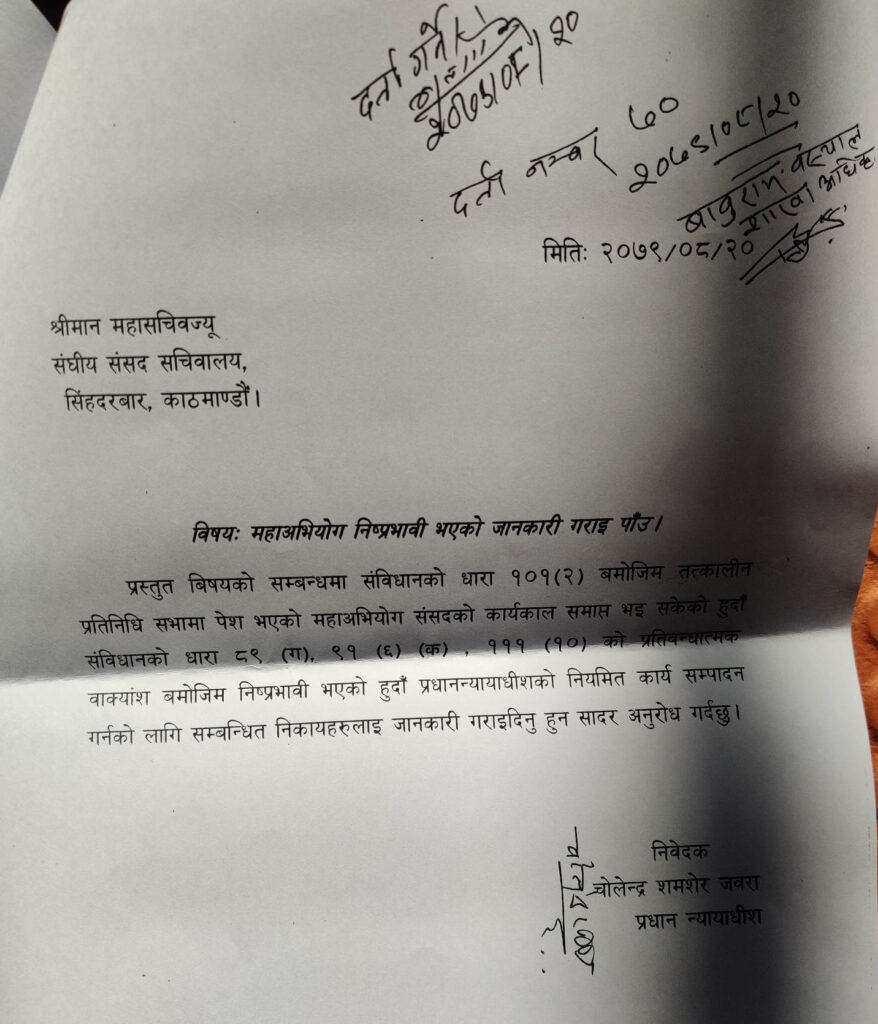 दर्ता गर्ने
२०७९/०८/२०
दर्ता नम्बर ७०
२०७९/०८/२०
बाबुराम
शाखा अधिकृत
मितिः २०७९/०८/२०
श्रीमान महासचिवज्यू
संघीय संसद सचिवालय,
सिंहदरबार, काठमाण्डौं।
विषयः महाअभियोग निष्प्रभावी भएको जानकारी गराइ पाँउ।
प्रस्तुत बिषयको सम्बन्धमा संविधानको धारा १०१(२) बमोजिम तत्कालीन
प्रतिनिधि सभामा पेश भएको महाअभियोग संसदको कार्यकाल समाप्त भइ सकेको हुदाँ
संविधानको धारा ८९ (ग), ९१ (६) (क) , १११ (१०) को प्रतिवन्धात्मक
वाक्यांश बमोजिम निष्प्रभावी भएको हुदाँ प्रधानन्यायाधीशको नियमित कार्य सम्पादन
गर्नको लागि सम्बन्धित निकायहरुलाइ जानकारी गराइदिनु हुन सादर अनुरोध गर्दछु।
निवेदक
चोलेन्द्र शमशेर जवरा
प्रधान न्यायाधीश